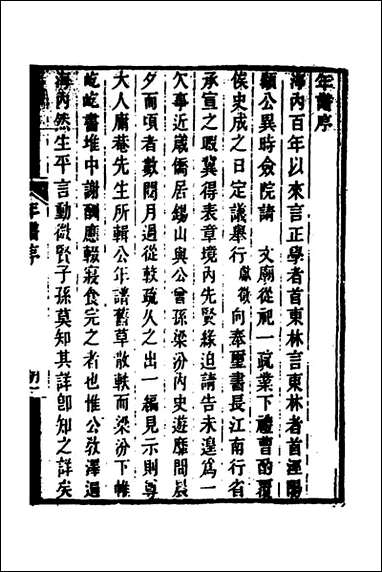 年譜序
海內百年以來言正學者首東林言東林者首涇陽
顧公異時僉院請 文廟從祀一疏業下禮曹酌覆
俟史成之日定議舉行 獻徵向奉璽書長江南行省
承宣之暇冀得表章境內先賢緣迫請告未遑為一
欠事近歲僑居錫山與公曾孫梁汾內史遊靡間晨
夕而頃者數閱月過從較疏久之出一編見示則尊
大人庸菴先生所輯公年譜舊草散軼而梁汾下帷
屹屹書堆中謝酬應輟寢食完之者也惟公敎澤遍
海內然生平言動微賢子孫莫知其詳卽知之詳矣
年譜序